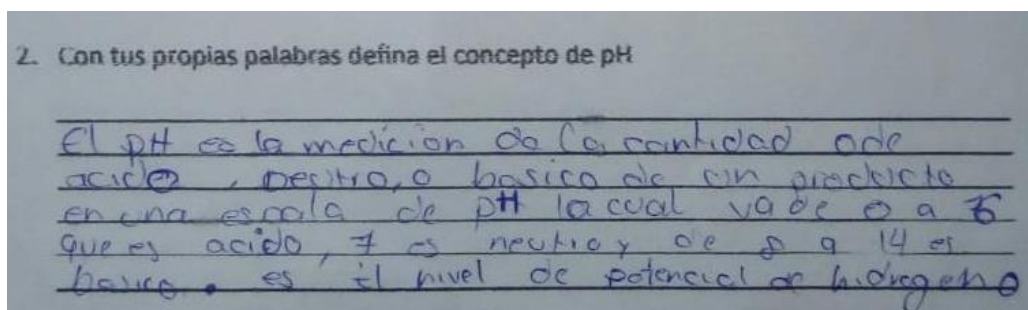 2. Con tus propias palabras defina el concepto de pH
El pH es la medicion de la cantidad de
acido, neutro, o basico de un producto
en una escala de pH la cual va de 0 a 6
que es acido, 7 es neutro y de 8 a 14 es
basico. es el nivel de potencial de hidrogeno